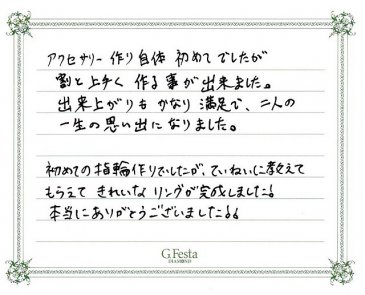 アクセサリー作り自体 初めてでしたが
割と上手く作る事が出来ました。
出来上がりもかなり満足で、二人の
一生の思い出になりました。
初めての指輪作りでしたが、ていねいに教えて
もらえて きれいな リングが完成しました!
本当にありがとうございました!!
G.Festa
DIAMOND